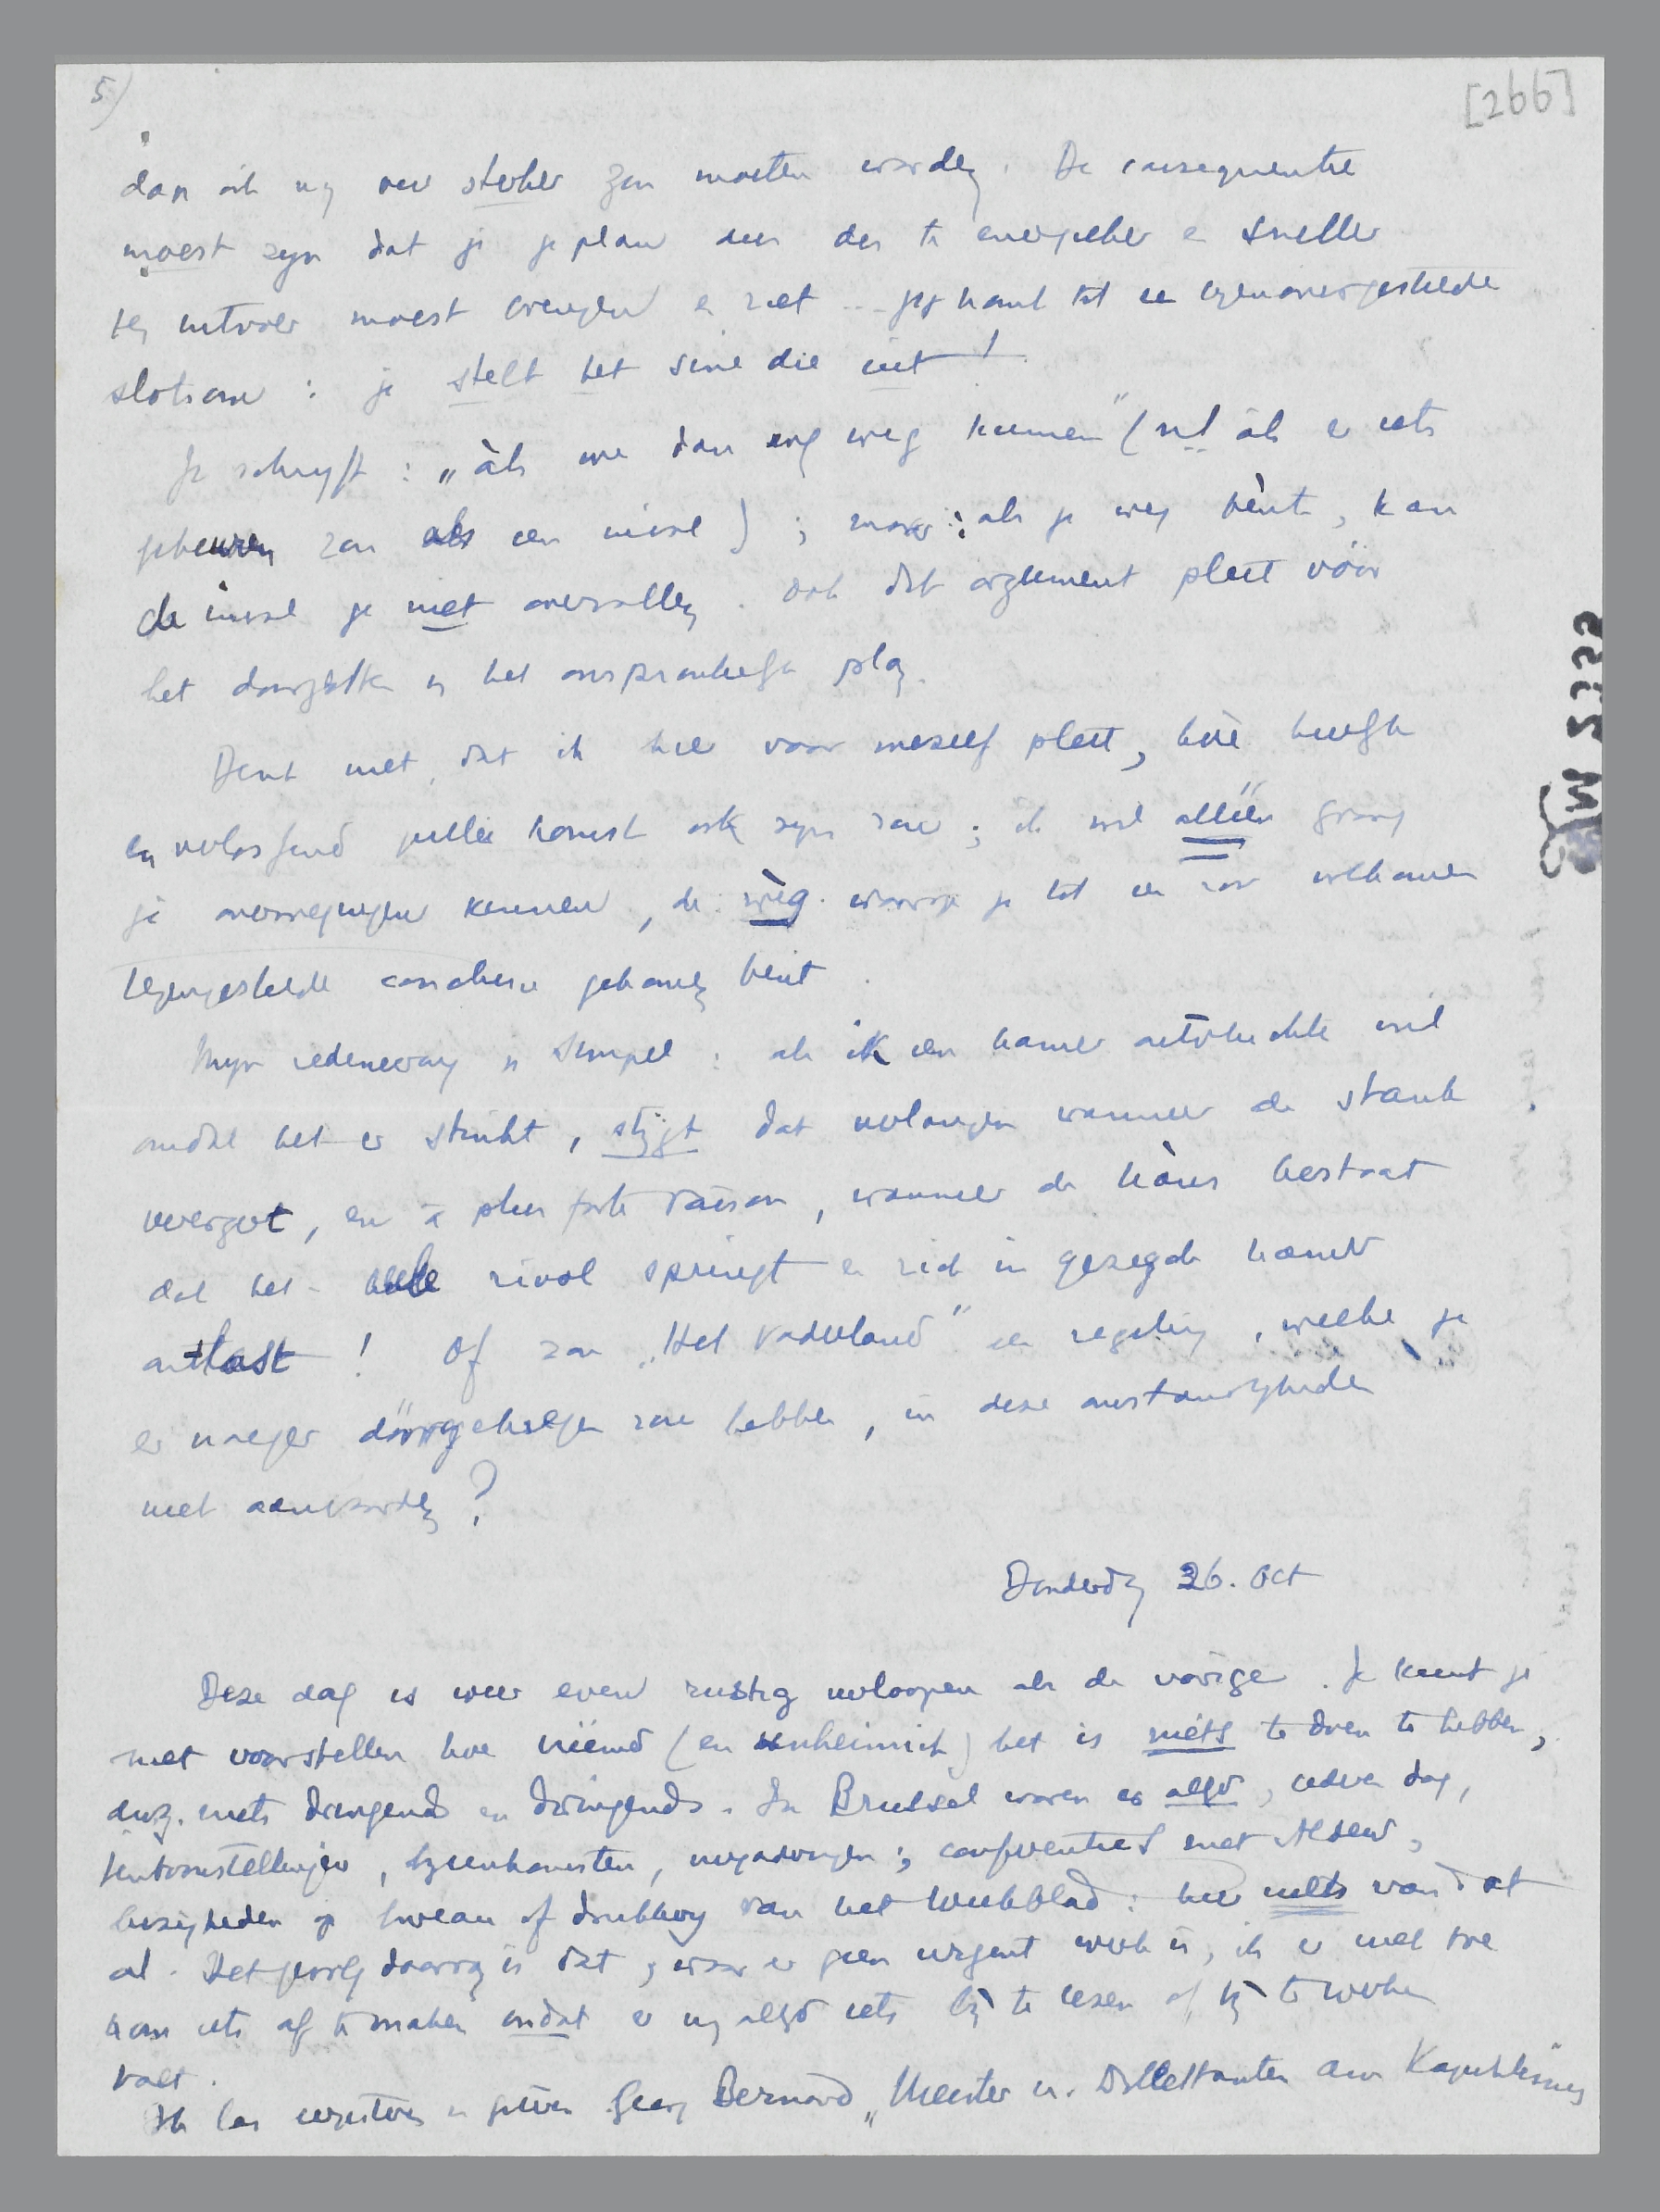 5)
[266]
dan ook nog veel sterker zou moeten worden. De consequentie
moest zijn dat je je plan des te energieker en sneller
ten uitvoer moest brengen en niet ... jij komt tot de tegenovergestelde
slotsom: je stelt het sine die uit!
Je schrijft: „àls we dan nog weg kunnen" (nl àls er iets
gebeuren zou als een invasie); maar: als je weg bènt, kan
de invasie je niet overvallen. Ook dat argument pleit vóór
het doorzetten van het oorspronkelijke plan.
Denk niet, dat ik hier voor mezelf pleit, hoe heugelijk
en verlossend jullie komst ook zijn zou; ik wil alléén graag
je overwegingen kennen, de wèg waarop je tot een zoo volkomen
tegengestelde conclusie gekomen bent.
Mijn redeneering is simpel: als ik een kamer ontvluchten wil
omdat het er stinkt, stijgt dat verlangen wanneer de stank
verergert, en à plus forte raison, wanneer de kàns bestaat
dat het hele riool springt en zich in gezegde kamer
ontlast! Of zou „Het Vaderland" een regeling, welke je
er vroeger dóórgekregen zou hebben, in deze omstandigheden
niet aanvaarden?
Donderdag 26. Oct
Deze dag is weer even rustig verloopen als de vorige. Je kunt je
niet voorstellen hoe vréémd (en unheimisch) het is niéts te doen te hebben,
dwz. niets dringends en dwingends. In Brussel waren er altijd, iederen dag,
tentoonstellingen, bijeenkomsten, vergaderingen; conferenties met
bezigheden op bureau of drukkery van het Weekblad: hier niets van dat
al. Het gevolg daarvan is dat, waar er geen urgent werk is, ik er niet toe
kom iets af te maken omdat er nog altijd iets bij te lezen of bij te werken
valt.
Ik las eergisteren en gisteren Georg Bernard „Meister u. Dilettanten am Kapitalismus